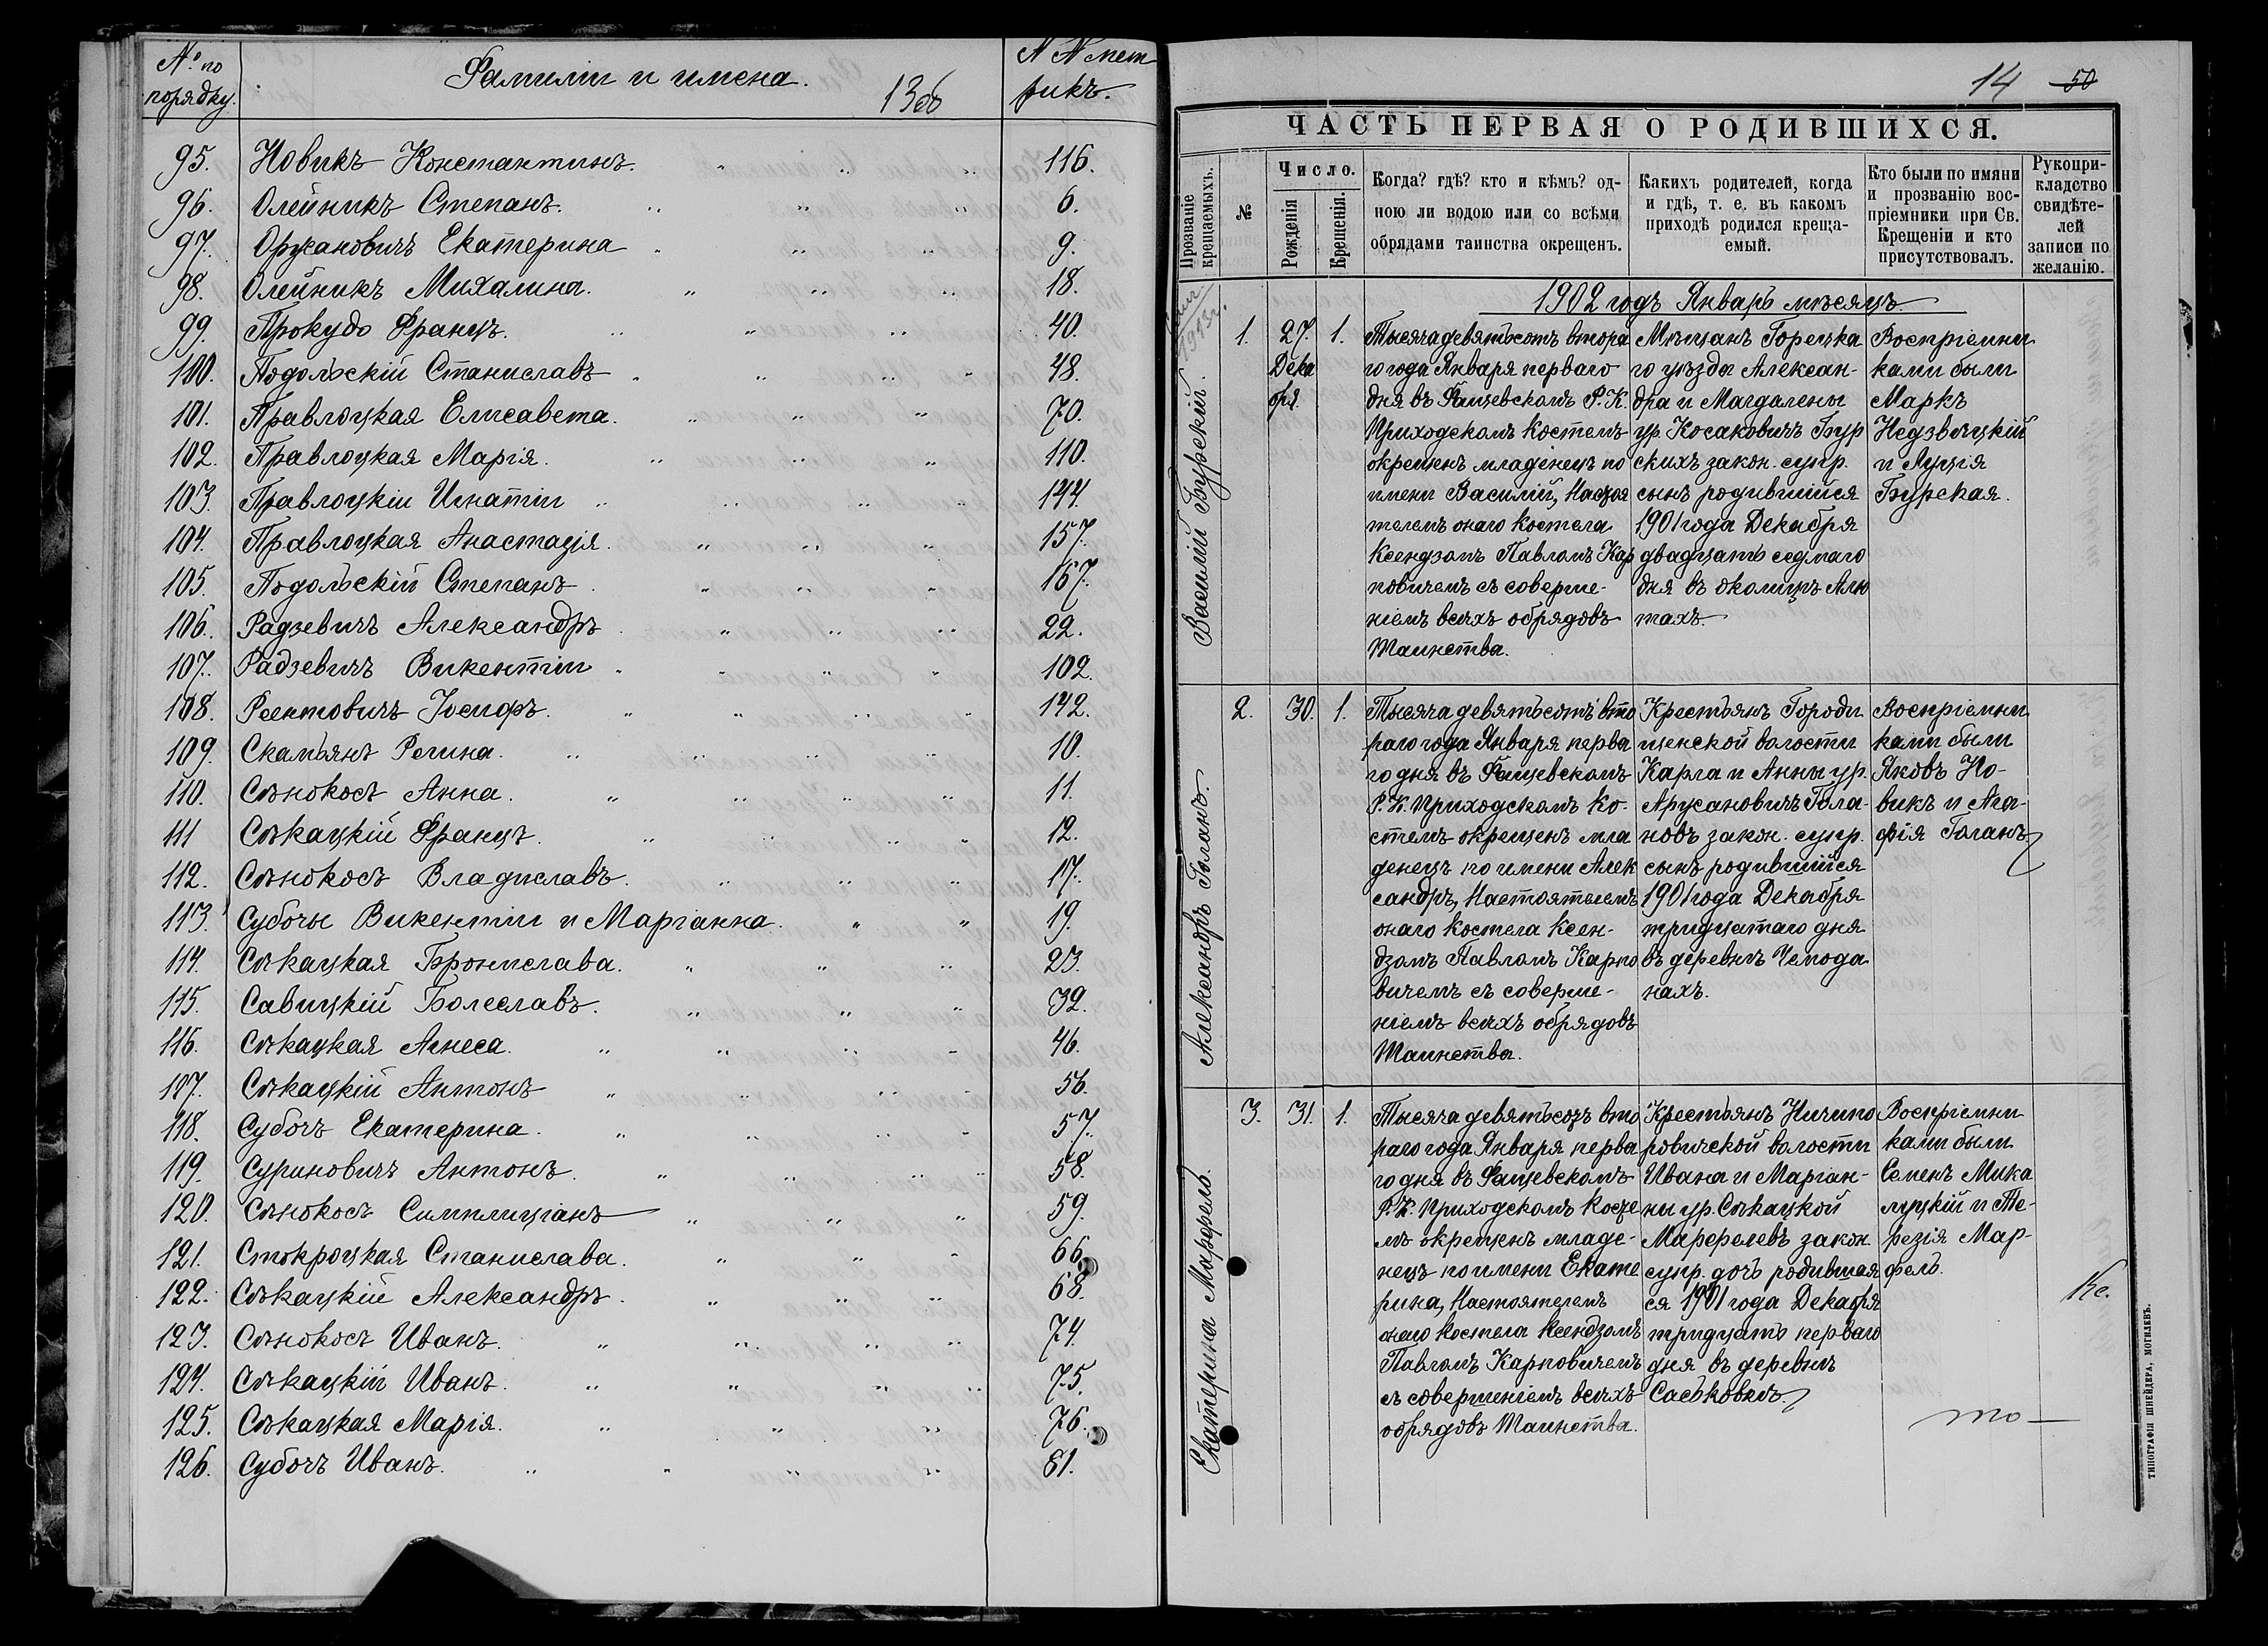 № по порядку.
Фамиліи и имена.
13об
№№ мет
рикъ.
95. Новикъ Константинъ. 116.
96. Олейникъ Степанъ. 6.
97. Оружановичъ Екатерина 9.
98. Олейникъ Михалина. 18.
99. Прокудо Францъ. 40.
100. Подольскій Станиславъ 48.
101. Правлоцкая Елисавета. 70.
102. Правлоцкая Марія. 110.
103. Правлоцкій Игнатій 144.
104. Правлоцкая Анастація. 157.
105. Подольскій Степанъ 167.
106. Радзевичъ Александръ 22.
107. Радзевичъ Викентій 102.
108. Реентовичъ Іосифъ. 142.
109. Скамьянъ Регина. 10.
110. Сѣнокосъ Анна. 11.
111 Сѣкацкій Францъ. 12.
112. Сѣнокосъ Владиславъ. 17.
113. Субочы Викентій и Маріанна. 19.
114. Сѣкацкая Бронислава. 23.
115. Савицкій Болеславъ. 32.
116. Сѣкацкая Агнеса. 46.
117. Сѣкацкій Антонъ 56.
118. Субочъ Екатерина. 57.
119. Суриновичъ Антонъ. 58.
120. Сѣнокосъ Симплиціанъ 59.
121. Стокроцкая Станислава. 66.
122. Сѣкацкій Александръ. 68.
123. Сѣнокосъ Иванъ. 74.
124. Сѣкацкій Иванъ. 75.
125. Сѣкацкая Марія. 76.
126. Субочъ Иванъ. 81.
14 50
ЧАСТЬ ПЕРВАЯ О РОДИВШИХСЯ.
Прозваніе крещаемыхъ.
№
Число.
Рожденія
Крещенія.
Когда? гдѣ? кто и кѣмъ? од-
ною ли водою или со всѣми
обрядами таинства окрещенъ.
Какихъ родителей, когда
и гдѣ, т. е. въ какомъ
приходѣ родился креща-
емый.
Кто были по имяни
и прозванію вос-
пріемники при Св.
Крещеніи и кто
присутствовалъ.
Рукопри-
кладство
свидѣте-
лей
записи по
желанію.
1902 годъ Январь мѣсяцъ
1913г.
Василій Бурскій.
1.
27.
Дека
бря.
1.
Тысяча девятьсотъ втора
го года Января перваго
дня въ Фащевскомъ Р. К.
Приходскомъ костелѣ
окрещенъ младенецъ по
имени Василій, Настоя
телемъ онаго костела
Ксендзомъ Павломъ Кар
повичемъ съ соверше-
ніемъ всѣхъ обрядовъ
Таинства.
Мѣщанъ Горецка
го уѣзда Алексан-
дра и Магдалены
ур. Косаковичъ Бур
скихъ закон. супр.
сынъ родившійся
1901 года Декабря
двадцать седмаго
дня въ околицѣ Алю
тахъ.
Воспріемни
ками были
Маркъ
Недзвѣцкій
и Луція
Бурская.
Александръ Голанъ.
2.
30.
1.
Тысяча девятьсотъ вто
раго года Января перва
го дня въ Фащевскомъ
Р. К. Приходскомъ Ко-
стелѣ окрещенъ мла
денецъ по имени Алек
сандръ, Настоятелемъ
онаго костела Ксен-
дзомъ Павломъ Карпо
вичемъ съ соверше-
ніемъ всѣхъ обрядовъ
Таинства.
Крестьянъ Городи
щенской волости
Карла и Анны ур.
Аружановичъ Гола-
новъ закон. супр.
сынъ родившійся
1901 года Декабря
тридцатаго дня
въ деревнѣ Чемода
нахъ.
Воспріемни
ками были
Яковъ Но-
викъ и Ага-
фія Голанъ
Екатерина Марфель.
3.
31.
1.
Тысяча девятьсотъ вто
раго года Января перва
го дня въ Фащевскомъ
Р. К. Приходскомъ косте
лѣ окрещенъ младе-
нецъ по имени Екате
рина, Настоятелемъ
онаго костела Ксендзомъ
Павломъ Карповичемъ
съ совершеніемъ всѣхъ
обрядовъ Таинства.
Крестьянъ Ничипо
ровичской волости
Ивана и Маріан-
ны ур. Сѣкацкой
Марфелевъ закон.
супр. дочь родившая
ся 1901 года Декабря
тридцать перваго
дня въ деревнѣ
Саськовкѣ.
Воспріемни
ками были
Семенъ Мика
луцкій и Те-
резія Мар-
фель.
Кс.
то —
ТИПОГРАФІЯ ШНЕЙДЕРА, МОГИЛЕВЪ.